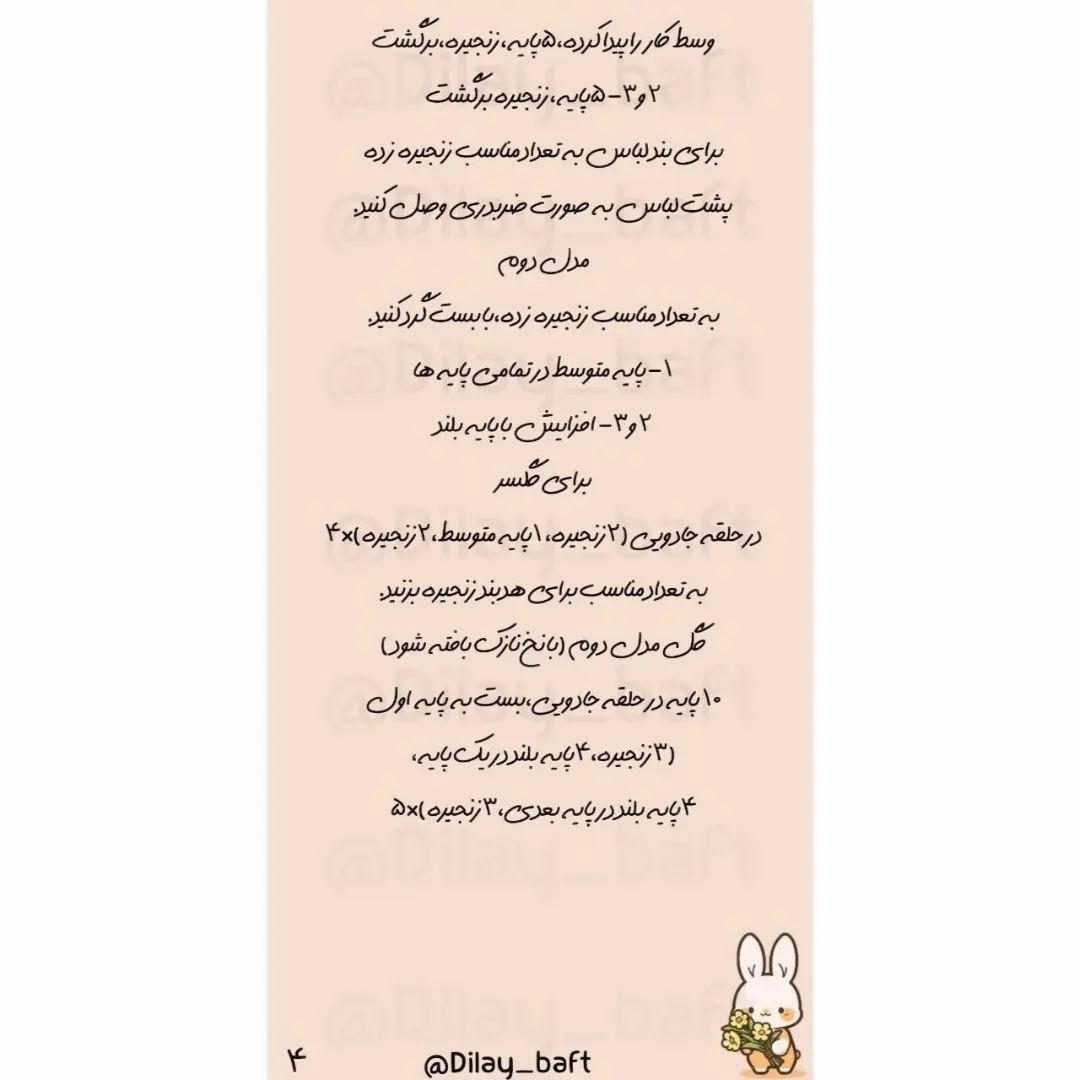 وسط کار را پیدا کرده، ۵پایه، زنجیره، برگشت
۲ و ۳- ۵پایه، زنجیره برگشت
برای بند لباس به تعداد مناسب زنجیره زده
پشت لباس به صورت ضربدری وصل کنید.
مدل دوم
به تعداد مناسب زنجیره زده، با بست گرد کنید.
۱- پایه متوسط در تمامی پایه ها
۲ و ۳- افزایش با پایه بلند
برای گلسر
در حلقه جادویی (۲ زنجیره، ۱ پایه متوسط، ۲ زنجیره)×۴
به تعداد مناسب برای هدبند زنجیره بزنید.
گل مدل دوم (با نخ نازک بافته شود)
۱۰ پایه در حلقه جادویی، بست به پایه اول
(۳ زنجیره، ۴ پایه بلند در یک پایه،
۴ پایه بلند در پایه بعدی، ۳ زنجیره)×۵
۴
@Dilay_baft